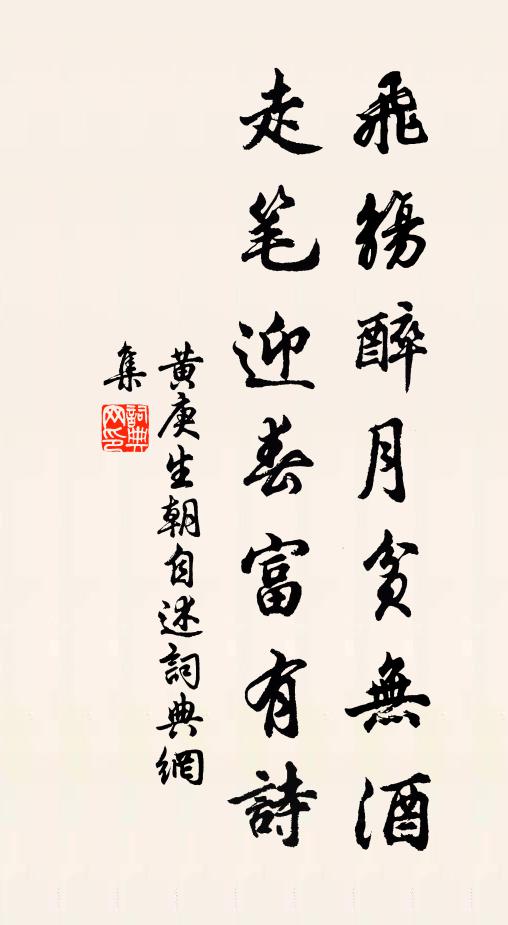 飛觴醉月貧無酒
走笔迎春富有詩
黄庚生朝自述詞典網
集
詞典网印